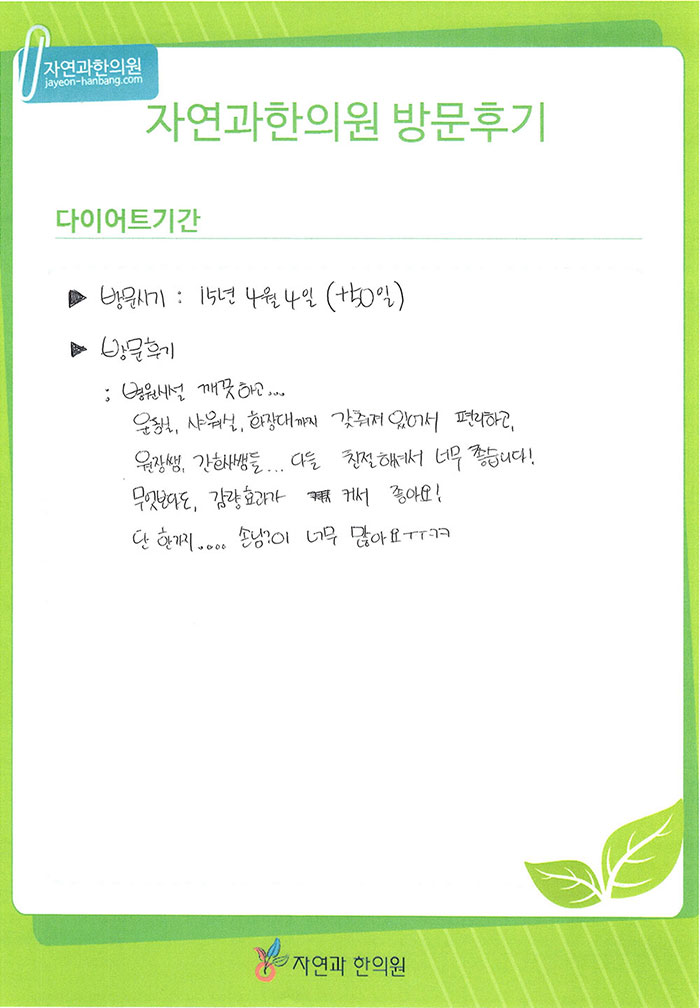 자연과한의원
jayeon-hanbang.com
자연과한의원 방문후기
다이어트기간
▶ 방문시기 : 15년 4월 4일 (+50일)
▶ 방문후기
: 병원시설 깨끗하고...
운동실, 샤워실, 화장대까지 갖춰져 있어서 편리하고,
원장쌤, 간호사쌤들... 다들 친절하셔서 너무 좋습니다!
무엇보다도, 감량효과가 커서 좋아요!
단 한가지.... 손님?이 너무 많아요ㅜㅜㅋㅋ
자연과 한의원